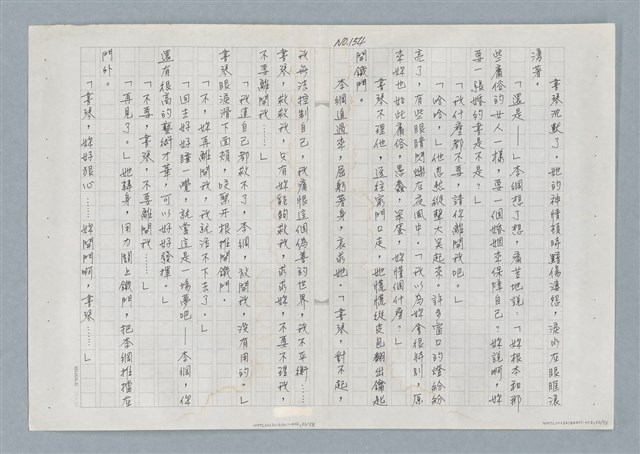 NO.154
書琴沉默了,她的神情頓時轉傷悽怨,淚水在眼眶滾
湧著。
「還是——」本綱想了想,痛苦地說:「妳根本和那
些庸俗的女人一樣,要一個婚姻來保障自己?妳說啊,妳
要一張婚約書是不是?」
「我什麼都不要,請你離開我吧。」
「哈哈,」他忽然縱聲大笑起來。許多窗口的燈紛紛
亮了,有些眼睛閃爍在夜風中。「我以為妳會很特別,原
來妳也如此庸俗,愚蠢,笨蛋,妳懂個什麼?」
書琴不理他,逕往窄門口走,她慌慌從皮包翻出鑰匙
開鐵門。
本綱追過來,屈躬著身,哀求她。「書琴,對不起,
我無法控制自己,我痛恨這個偽善的世界,我不平衡……
書琴,救救我,只有妳能夠救我,求求妳,不要不理我,
不要離開我……」
「我連自己都救不了,本綱,放開我,沒有用的。」
書琴眼淚滑下面頰,咬緊牙根推開鐵門。
「不,妳再離開我,我就活不下去了。」
「回去好好睡一覺,就當這是一場夢吧——本綱,你
還有很高的藝術才華,可以好好發揮。」
「不要,書琴,不要離開我……」
「再見了。」她轉身,用力關上鐵門,把本綱推擋在
門外。
「書琴,妳好狠心……妳開門啊,書琴……」